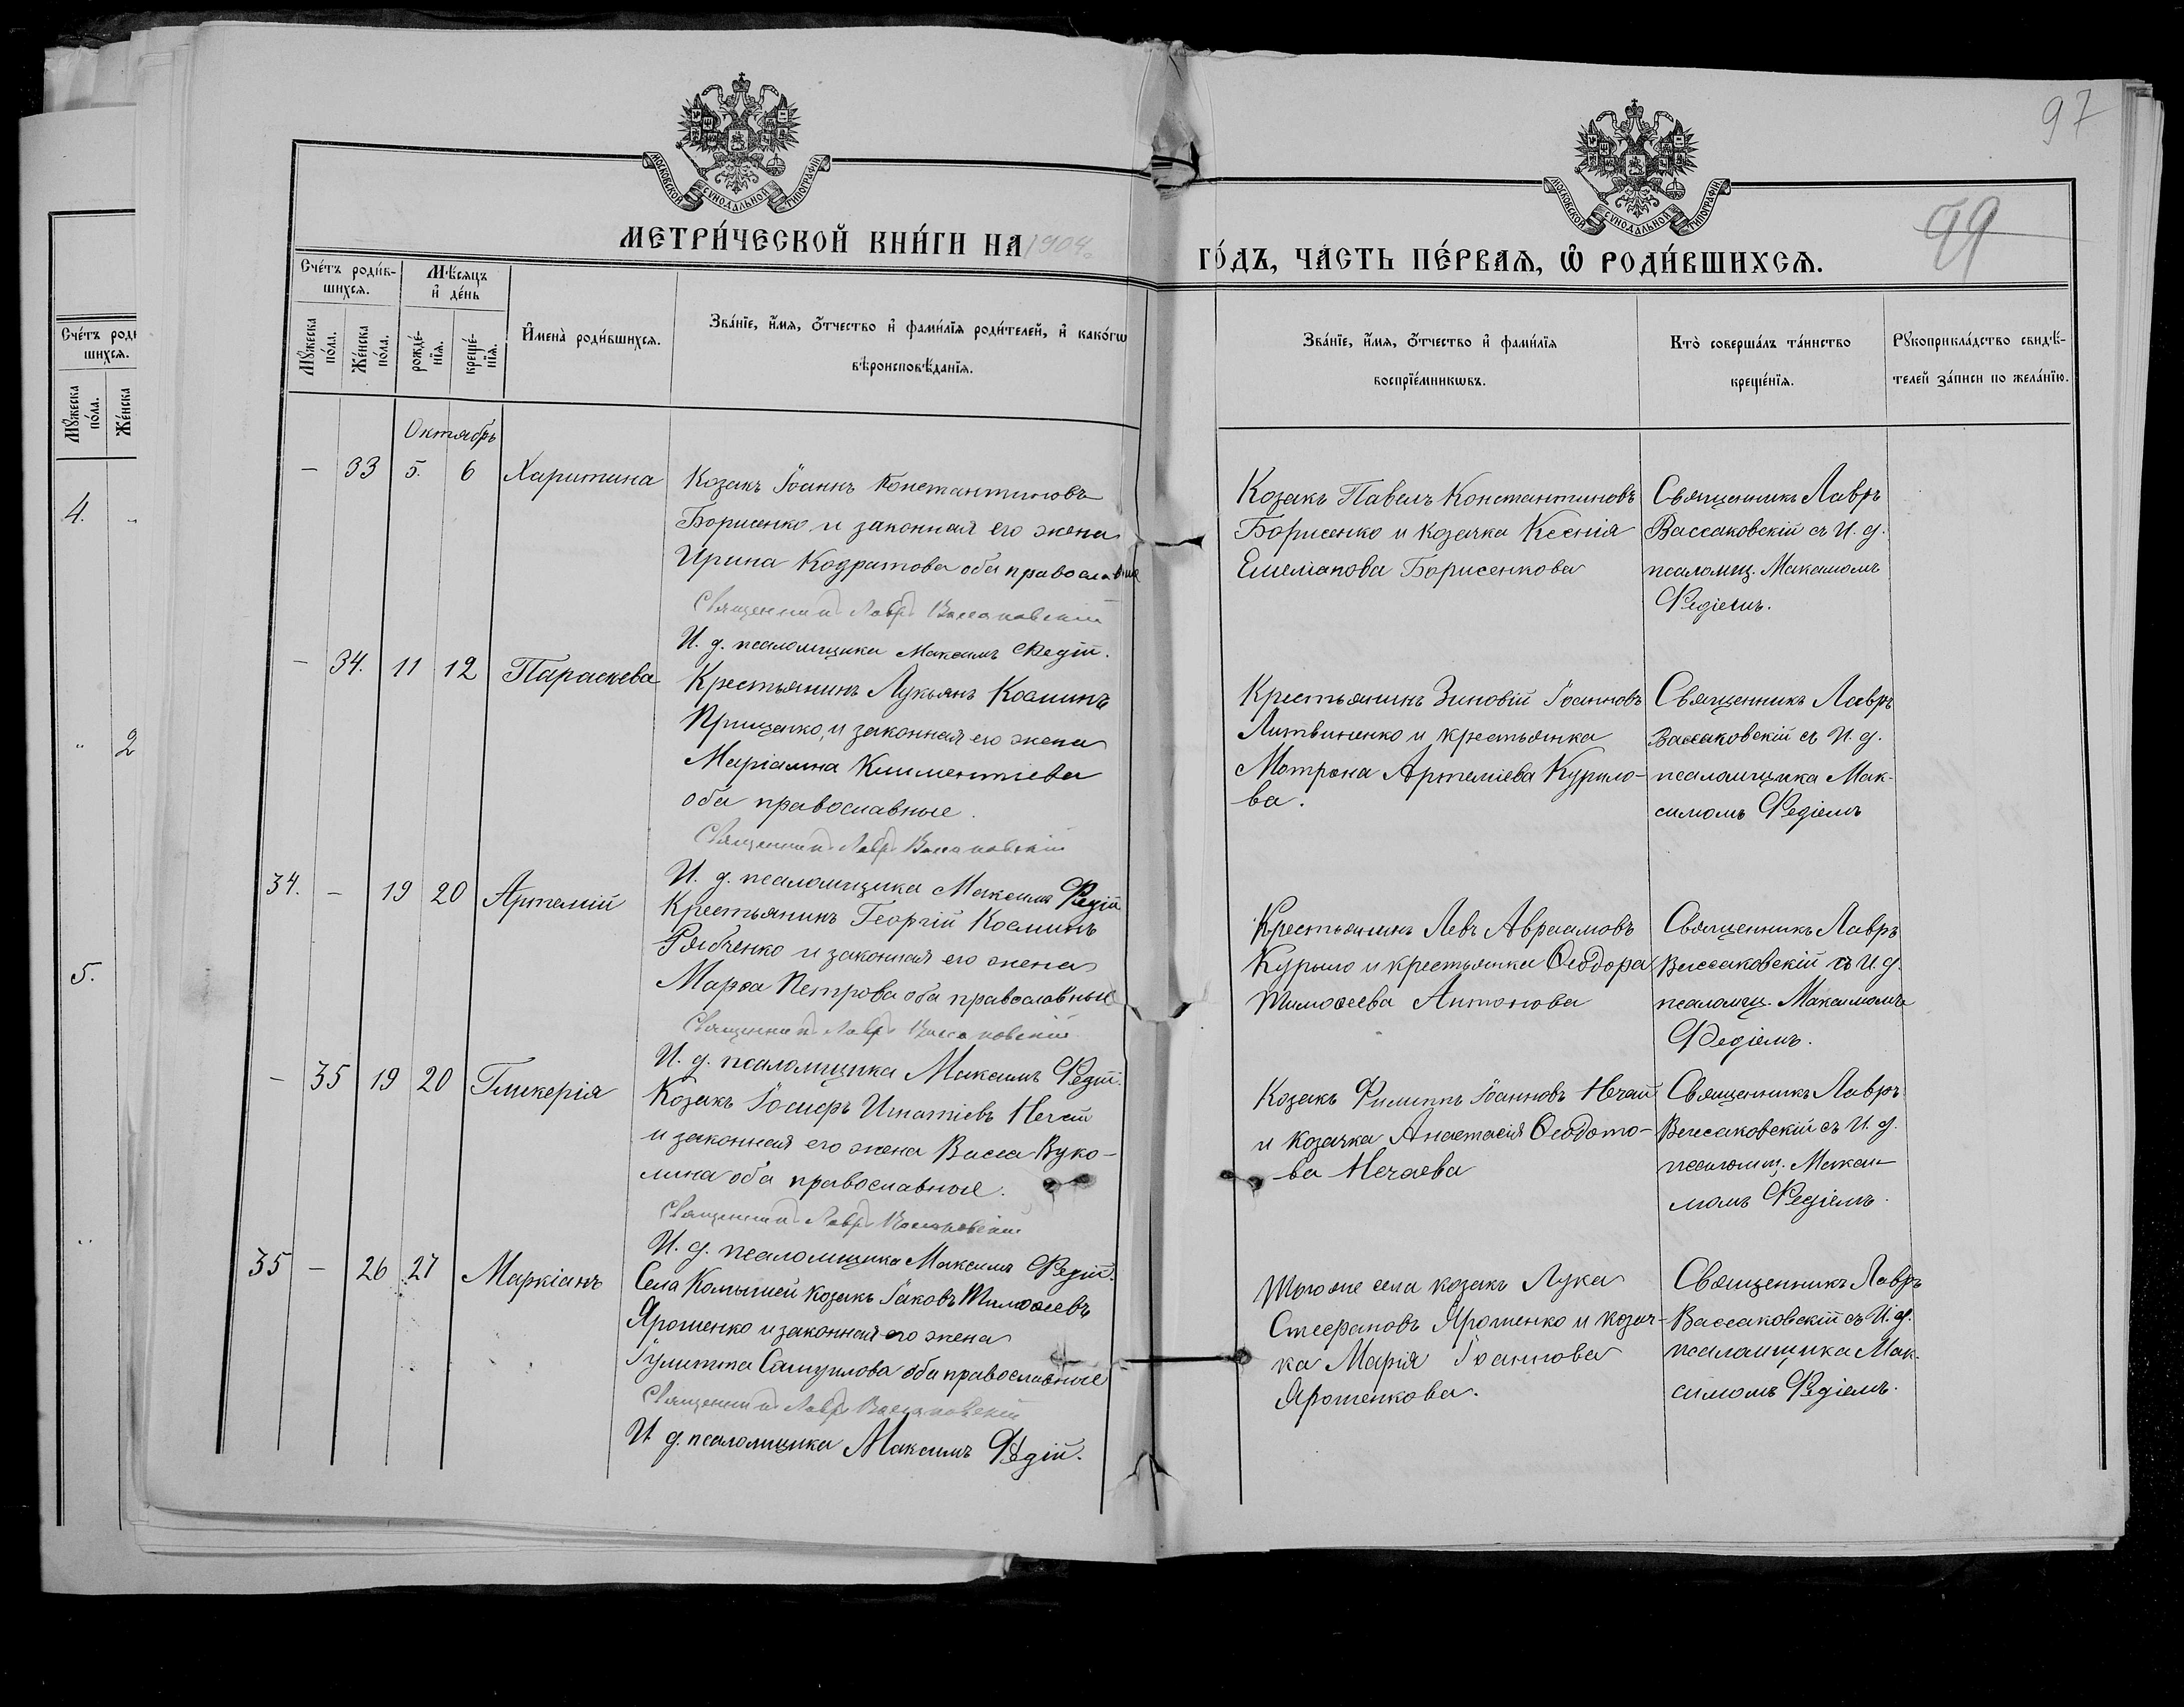 97
99
МОСКОВСКОЙ СУНОДАЛЬНОЙ ТИПОГРАФІИ
МОСКОВСКОЙ СУНОДАЛЬНОЙ ТИПОГРАФІИ
МЕТРИ́ЧЕСКОЙ КНИ́ГИ НА 1904
ГО́ДЪ, ЧА́СТЬ ПЕ́РВАѦ, Ѡ҆ РОДИ́ВШИХСѦ.
Сче́тъ роди́в-
шихсѧ.
Мѣ́сѧцъ
и҆ де́нь
Мꙋ́жеска
по́ла.
Же́нска
по́ла.
рожде́-
нїѧ.
креще́-
нїѧ.
И҆мена̀ роди́вшихсѧ.
Зва́нїе, и҆́мѧ, ѻ҆́тчество и҆ фами́лїѧ роди́телей, и҆ како́гѡ
вѣроисповѣ́данїѧ.
Зва́нїе, и҆́мѧ, ѻ҆́тчество и҆ фами́лїѧ
воспрїе́мникѡвъ.
Кто̀ соверша́лъ та́инство
креще́нїѧ.
Рꙋкоприкла́дство свидѣ́-
телей за́писи по жела́нїю.
Октябрь
— 33 5. 6 Харитина
Козакъ Іоаннъ Константиновъ
Борисенко и законная его жена
Ирина Кодратова оба православные
Священникъ Лавръ Вассаковскій
И. д. псаломщика Максимъ Федій.
Козакъ Павелъ Константиновъ
Борисенко и козачка Ксенія
Емеліанова Борисенкова
Священникъ Лавръ
Вассаковскій съ И. д.
псаломщ. Макимомъ
Федіемъ.
— 34. 11 12 Параскева
Крестьянинъ Лукьянъ Косминъ
Прищенко, и законная его жена
Маріамна Климентіева
оба православные.
Священникъ Лавръ Вассаковскій
И. д. псаломщика Максимъ Федій
Крестьянинъ Зиновій Іоанновъ
Литвиненко и крестьянка
Мотрона Артеміева Курило-
ва.
Священникъ Лавръ
Вассаковскій съ И. д.
псаломщика Мак-
симомъ Федіемъ
34. — 19 20 Артемій
Крестьянинъ Георгій Косминъ
Рябченко и законная его жена
Марѳа Петрова оба православные
Священникъ Лавръ Вассаковскій
И. д. псаломщика Максимъ Федій.
Крестьянинъ Левъ Авраамовъ
Курило и крестьянка Ѳеодора
Тимоѳеева Антонова
Священникъ Лавръ
Вассаковскій съ И. д.
псаломщ. Максимомъ
Федіемъ.
— 35 19 20 Гликерія
Козакъ Іосифъ Игнатіевъ Нечай
и законная его жена Васса Вуко-
лина оба православные.
Священникъ Лавръ Вассаковскій
И. д. псаломщика Максимъ Федій.
Козакъ Филиппъ Іоанновъ Нечай
и козачка Анастасія Ѳеодото-
ва Нечаева
Священникъ Лавръ
Вассаковскій съ И. д.
псаломщ. Макси-
момъ Федіемъ.
35 — 26 27 Маркіанъ
Села Комышей козакъ Іаковъ Тимоѳеевъ
Ярошенко и законная его жена
Іулитта Самуилова оба православные
Священникъ Лавръ Вассаковскій
И. д. псаломщика Максимъ Федій.
Того же села козакъ Лука
Стефановъ Ярошенко и козач-
ка Марія Іоаннова
Ярошенкова.
Священникъ Лавръ
Вассаковскій съ И. д.
псаломщика Мак-
симомъ Федіемъ.
Сче́тъ роди
шихсѧ.
Мꙋ́жеска
по́ла.
Же́нска
4. „
„ 2
5.
„